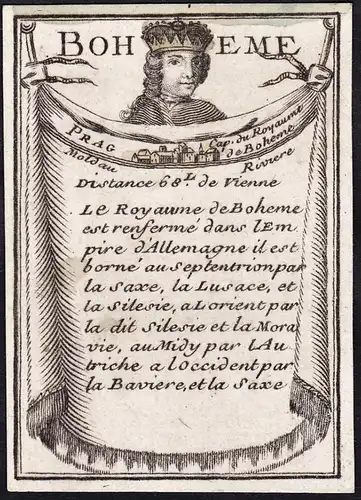 BOHEME
PRAG Cap. du Royaume
de Boheme
Moldau Riviere
Distance 68 L. de Vienne
Le Royaume de Boheme
est renfermé dans lEm
pire d'Allemagne il est
borné au Septentrion par
la Saxe, la Lusace, et
la Silesie, a Lorient par
la dit Silesie et la Mora
vie, au Midy par lAu
triche a l'Occident par
la Baviere, et la Saxe